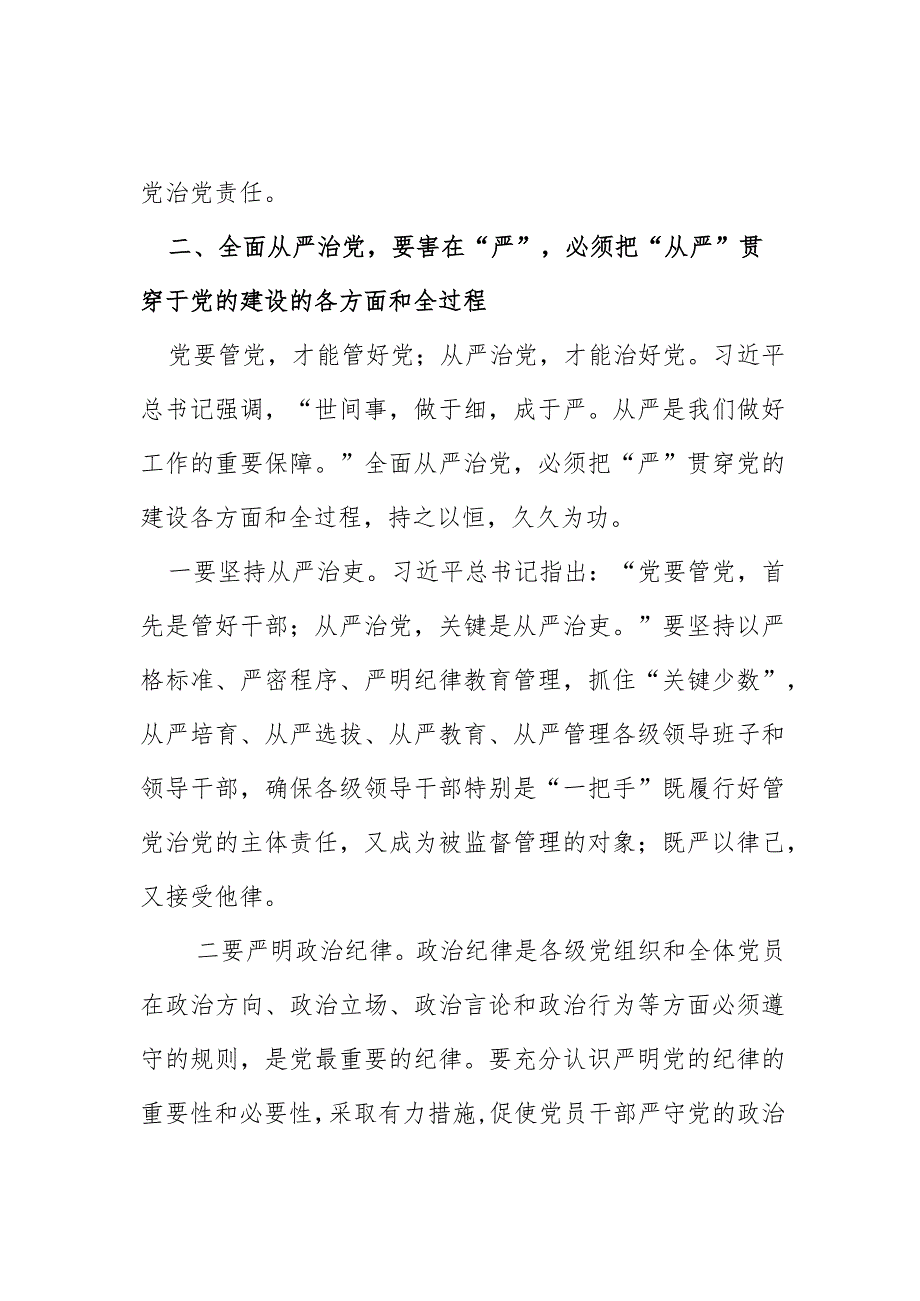 党治党责任。
二、全面从严治党，要害在“严”，必须把“从严”贯
穿于党的建设的各方面和全过程
党要管党，才能管好党；从严治党，才能治好党。习近平
总书记强调，“世间事，做于细，成于严。从严是我们做好
工作的重要保障。”全面从严治党，必须把“严”贯穿党的
建设各方面和全过程，持之以恒，久久为功。
一要坚持从严治吏。习近平总书记指出：“党要管党，首
先是管好干部；从严治党，关键是从严治吏。”要坚持以严
格标准、严密程序、严明纪律教育管理，抓住“关键少数”，
从严培育、从严选拔、从严教育、从严管理各级领导班子和
领导干部，确保各级领导干部特别是“一把手”既履行好管
党治党的主体责任，又成为被监督管理的对象；既严以律己，
又接受他律。
二要严明政治纪律。政治纪律是各级党组织和全体党员
在政治方向、政治立场、政治言论和政治行为等方面必须遵
守的规则，是党最重要的纪律。要充分认识严明党的纪律的
重要性和必要性,采取有力措施,促使党员干部严守党的政治